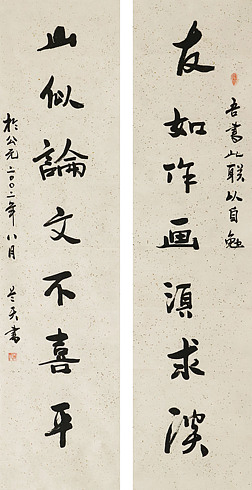 吾書此联以自勉
友如作画須求淡
山似論文不喜平
於公元二〇〇二年八月